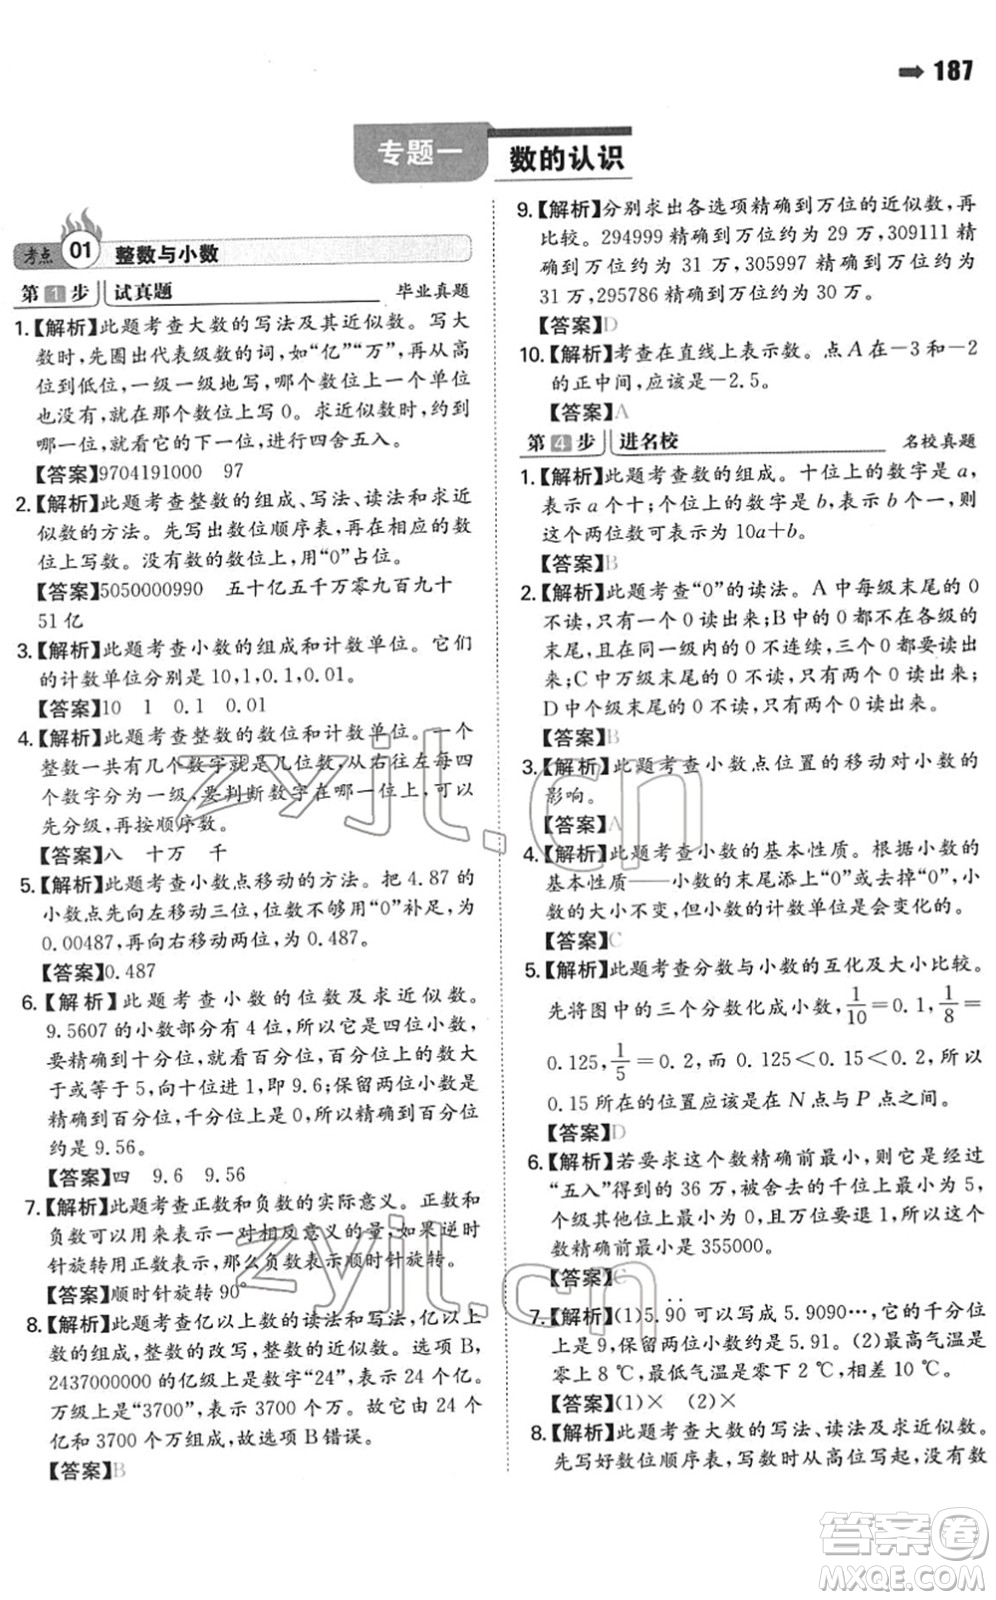 187
专题一 数的认识
考点 01 整数与小数
第1步 试真题 毕业真题
1.【解析】此题考查大数的写法及其近似数。写大
数时,先圈出代表级数的词,如“亿”“万”,再从高
位到低位,一级一级地写,哪个数位上一个单位
也没有,就在那个数位上写0。求近似数时,约到
哪一位,就看它的下一位,进行四舍五入。
【答案】9704191000 97
2.【解析】此题考查整数的组成、写法、读法和求近
似数的方法。先写出数位顺序表,再在相应的数
位上写数。没有数的数位上,用“0”占位。
【答案】5050000990 五十亿五千万零九百九十
51亿
3.【解析】此题考查小数的组成和计数单位。它们
的计数单位分别是10,1,0.1,0.01。
【答案】10 1 0.1 0.01
4.【解析】此题考查整数的数位和计数单位。一个
整数一共有几个数字就是几位数,从个位起每
四个数字分为一级,要判断数字在哪一位上,可以
先分级,再按顺序数。
【答案】八 十万 千
5.【解析】此题考查小数点移动的方法。把4.87的
小数点先向左移动三位,位数不够用“0”补足,为
0.00487,再向右移动两位,为0.487。
【答案】0.487
6.【解析】此题考查小数的位数及求近似数。
9.5607的小数部分有4位,所以它是四位小数,
要精确到十分位,就看百分位,百分位上的数大
于或等于5,向十位进1,即9.6;保留两位小数是
精确到百分位,千分位上是0,所以精确到百分位
约是9.56。
【答案】四 9.6 9.56
7.【解析】此题考查正数和负数的实际意义。正数和
负数可以用来表示一对相反意义的量,如果逆时
针旋转用正数表示,那么负数表示顺时针旋转。
【答案】顺时针旋转90°
8.【解析】此题考查亿以上数的读法和写法,亿以上
数的组成,整数的改写,整数的近似数。选项B,
2437000000的亿级上是数字“24”,表示24个亿。
万级上是“3700”,表示3700个万。故它由24个
亿和3700个万组成,故选项B错误。
【答案】B
9.【解析】分别求出各选项精确到万位的近似数,再
比较。294999精确到万位约为29万,309111精
确到万位约为31万,305997精确到万位约为
31万,295786精确到万位约为30万。
【答案】D
10.【解析】考查在直线上表示数。点A在-3和-2
的正中间,应该是-2.5。
【答案】A
第4步 进名校 名校真题
1.【解析】此题考查数的组成。十位上的数字是a,
表示a个十;个位上的数字是b,表示b个一,则
这个两位数可表示为10a+b。
【答案】B
2.【解析】此题考查“0”的读法。A中每级末尾的0
不读,只有一个0读出来;B中的0不在各级的
末尾,且在同一级内的0不连续,三个0都要读出
来;C中万级末尾的0不读,两个0读出来;
D中万级末尾的0不读,没有0读出来。
【答案】B
3.【解析】此题考查小数点位置的移动对小数的
影响。
【答案】A
4.【解析】此题考查小数的基本性质。根据小数的
基本性质——小数的末尾添上“0”或去掉“0”,小
数的大小不变,但小数的计数单位是会变化的。
【答案】C
5.【解析】此题考查分数与小数的互化及大小比较。
先将图中的三个分数化成小数,1/10=0.1,1/8=
0.125,1/5=0.2,而0.125<0.15<0.2,所以
0.15所在的位置应该是在N点与P点之间。
【答案】D
6.【解析】若要求这个数精确前最小,则这个数是
“五入”得到的36万,被舍去的千位上最小为5,
个级其余数位为0,且万位要退1,所以这个
数精确前最小是355000。
【答案】C
7.【解析】(1)5.9̇0̇可以写成5.9090…,它的千分位
上是9,保留两位小数约是5.91。(2)最高气温是
零上8℃,最低气温是零下2℃,相差10℃。
【答案】(1)× (2)×
8.【解析】此题考查大数的写法、读法及求近似数。
先写好数位顺序表,再从高位写起,哪一位没有数
zyjl.cn
zyjl.cn
答案卷
MXQE.COM